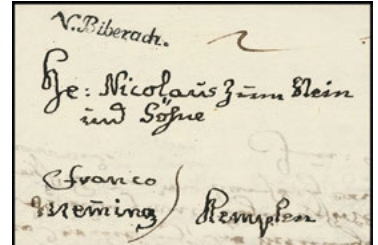 V. Biberach.
He: Nicolaus Zum Stein
und Söhne
franco
Meming
Kempten